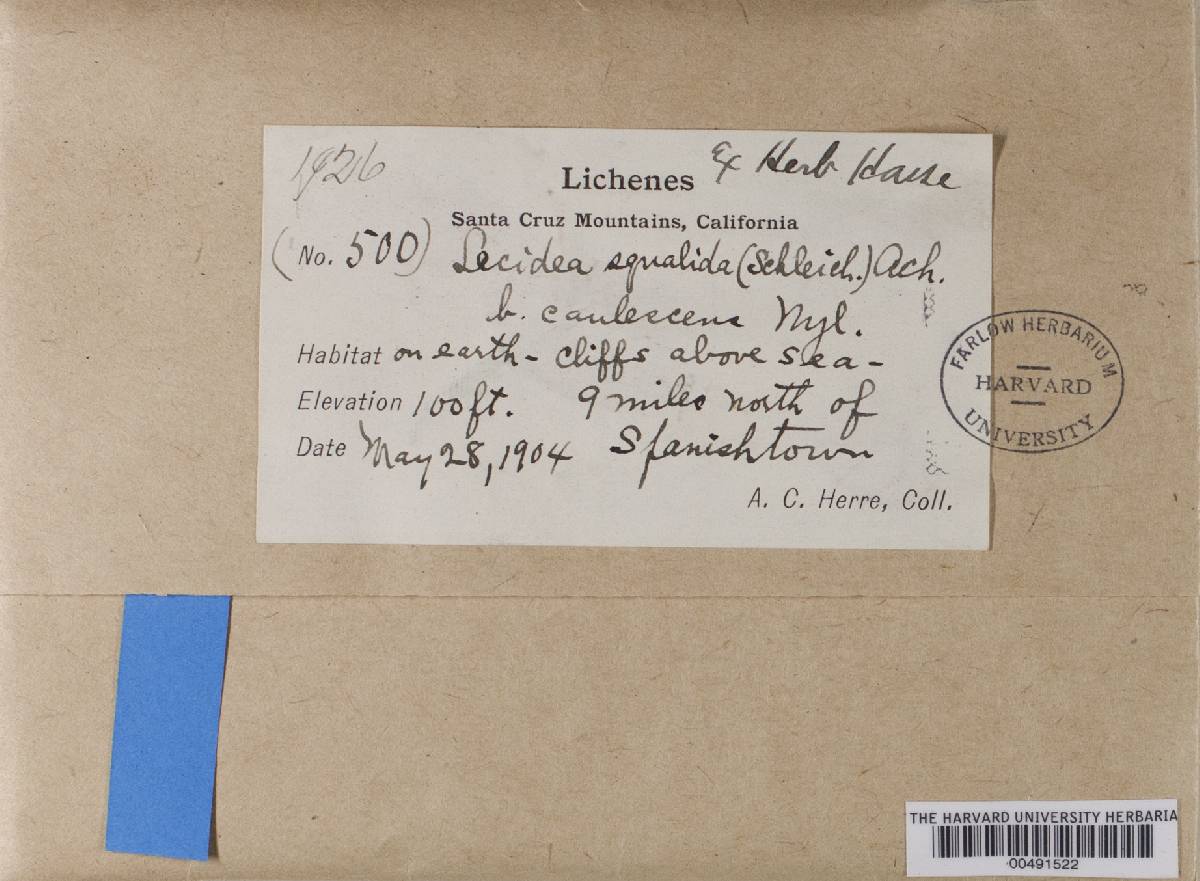 1926
Ex Herb Hasse
Lichenes
Santa Cruz Mountains, California
(No. 500) Lecidea squalida (Schleich.) Ach.
b. caulescens Nyl.
Habitat on earth - cliffs above sea -
Elevation 100 ft. 9 miles north of
Date May 28, 1904 Spanishtown
A. C. Herre, Coll.
FARLOW HERBARIUM
HARVARD
UNIVERSITY
THE HARVARD UNIVERSITY HERBARIA
00491522